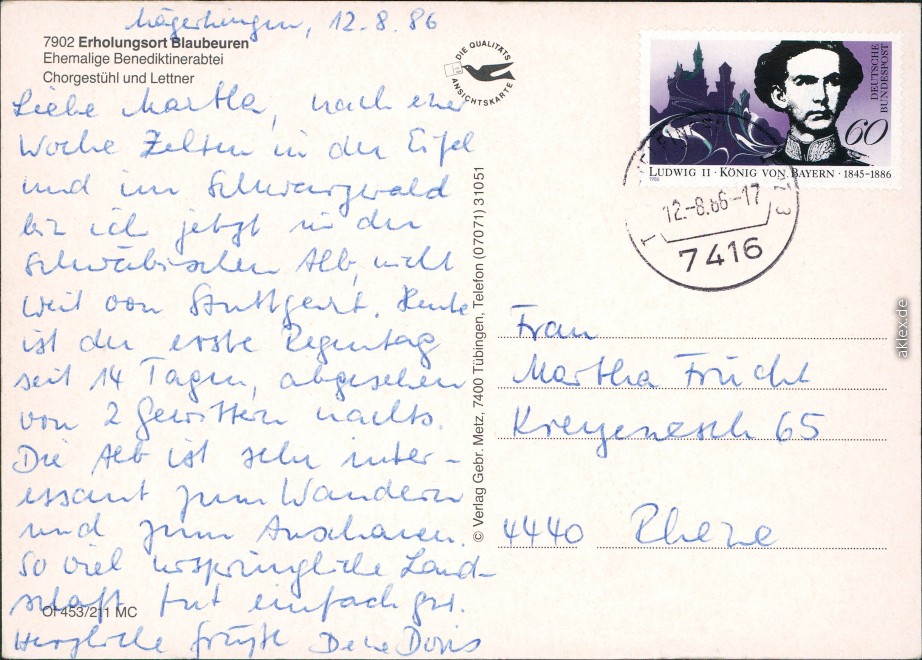 Mägerkingen, 12.8.86
7902 Erholungsort Blaubeuren
Ehemalige Benediktinerabtei
Chorgestühl und Lettner
Liebe Martha, nach einer
Woche Zelten in der Eifel
und im Schwarzwald
bin ich jetzt in der
Schwäbischen Alb, nicht
weit von Stuttgart. Heute
ist der erste Regentag
seit 14 Tagen, abgesehen
von 2 Gewittern nachts.
Die Alb ist sehr inter-
essant zum Wandern
und zum Anschauen.
So viel ursprüngliche Land-
schaft tut einfach gut.
Herzliche Grüße Deine Doris
Ol 453/211 MC
DIE QUALITÄTS
ANSICHTSKARTE
© Verlag Gebr. Metz, 7400 Tübingen, Telefon (07071) 31051
DEUTSCHE
BUNDESPOST
60
LUDWIG II · KÖNIG VON BAYERN · 1845-1886
1986
12.-8.86-17
7416
Frau
Martha Frücht
65
4440 Rheine
aklex.de